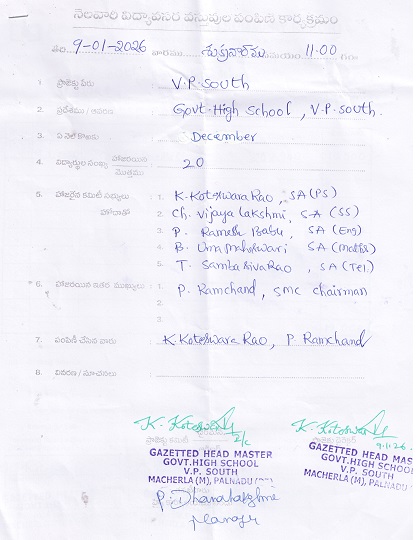 నెలవారి విద్యావసర వస్తువుల పంపిణీ కార్యక్రమం
తేది: 9-01-2026 వారము శుక్రవారము సమయం 11.00 గం
1. ప్రాజెక్టు పేరు : V.P. South
2. ప్రదేశము / ఆవరణ : Govt. High School, V.P. South.
3. ఏ నెల కొఱకు : December
4. విద్యార్థుల సంఖ్య హాజరయిన మొత్తము : 20
5. హాజరైన కమిటీ సభ్యులు హోదాతో : 1. K. Koteswara Rao, SA (PS)
2. Ch. Vijaya Lakshmi, S-A (SS)
3. P. Ramesh Babu, SA (Eng)
4. B. Uma maheswari SA (maths)
5. T. Samba siva Rao, SA (Tel.)
6. హాజరయిన ఇతర ముఖ్యులు : 1. P. Ramchand, SMC chairman
2.
3.
7. పంపిణీ చేసిన వారు : K. Koteswara Rao, P Ramchand
8. వివరణ / సూచనలు :
K. Koteswara
K. Koteswara
I/c
9.1.26
GAZETTED HEAD MASTER
GOVT.HIGH SCHOOL
V.P. SOUTH
MACHERLA (M), PALNADU
GAZETTED HEAD MAS
GOVT.HIGH SCHOOL
V.P. SOUTH
MACHERLA (M), PALNADU
P. Dhanalakshmi